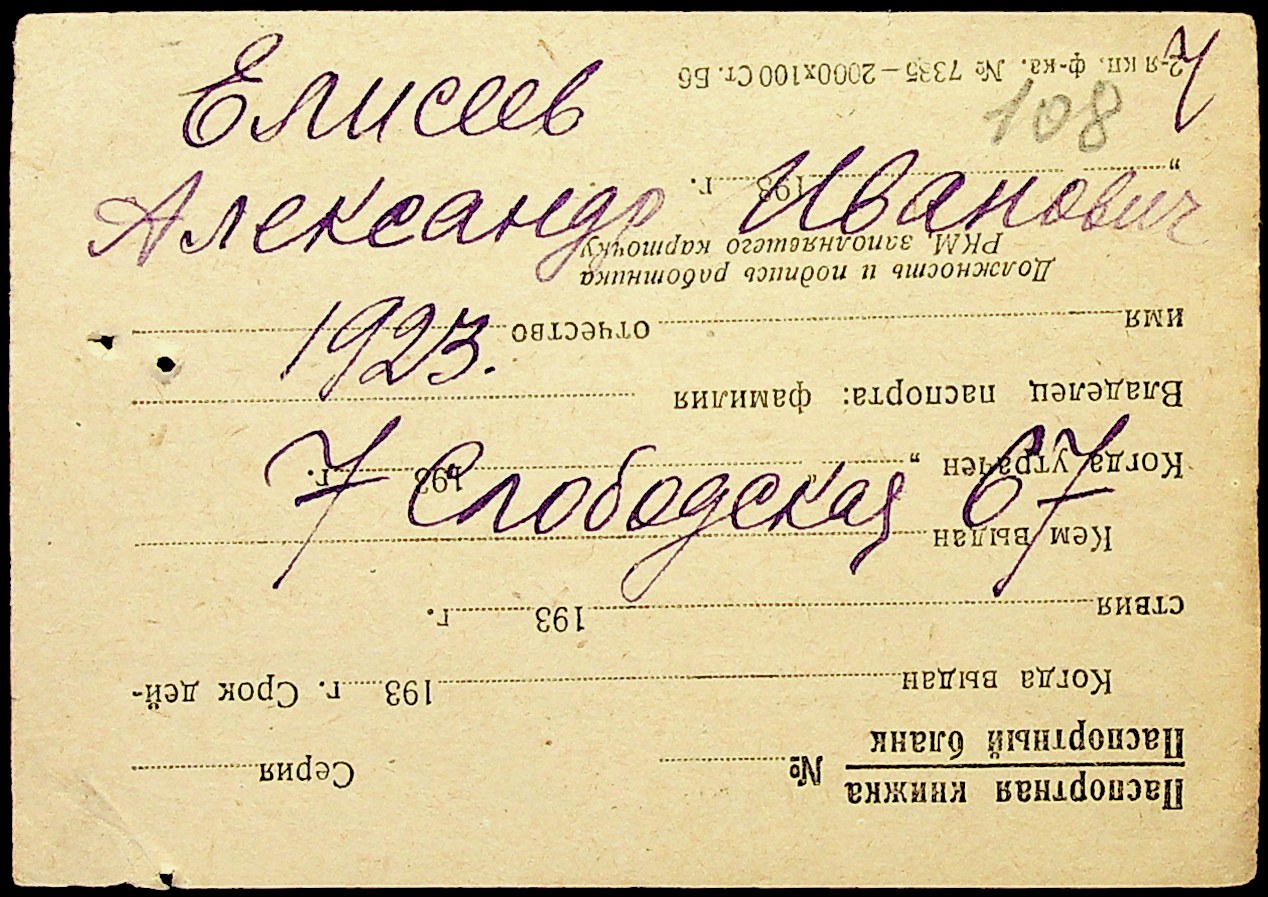 Елисеев
Александр Иванович
1923.
7 Слободская 67
7
108
Паспортная книжка
Паспортный бланк
№ Серия
Когда выдан 193 г. Срок дей-
ствия 193 г.
Кем выдан
Когда утрачен „ “ 193 г.
Владелец паспорта: фамилия
имя отчество
Должность и подпись работника
РКМ, заполнявшего карточку
„ 193 г.
2-я кп. ф-ка. № 7335—2000х100 Ст. Б6